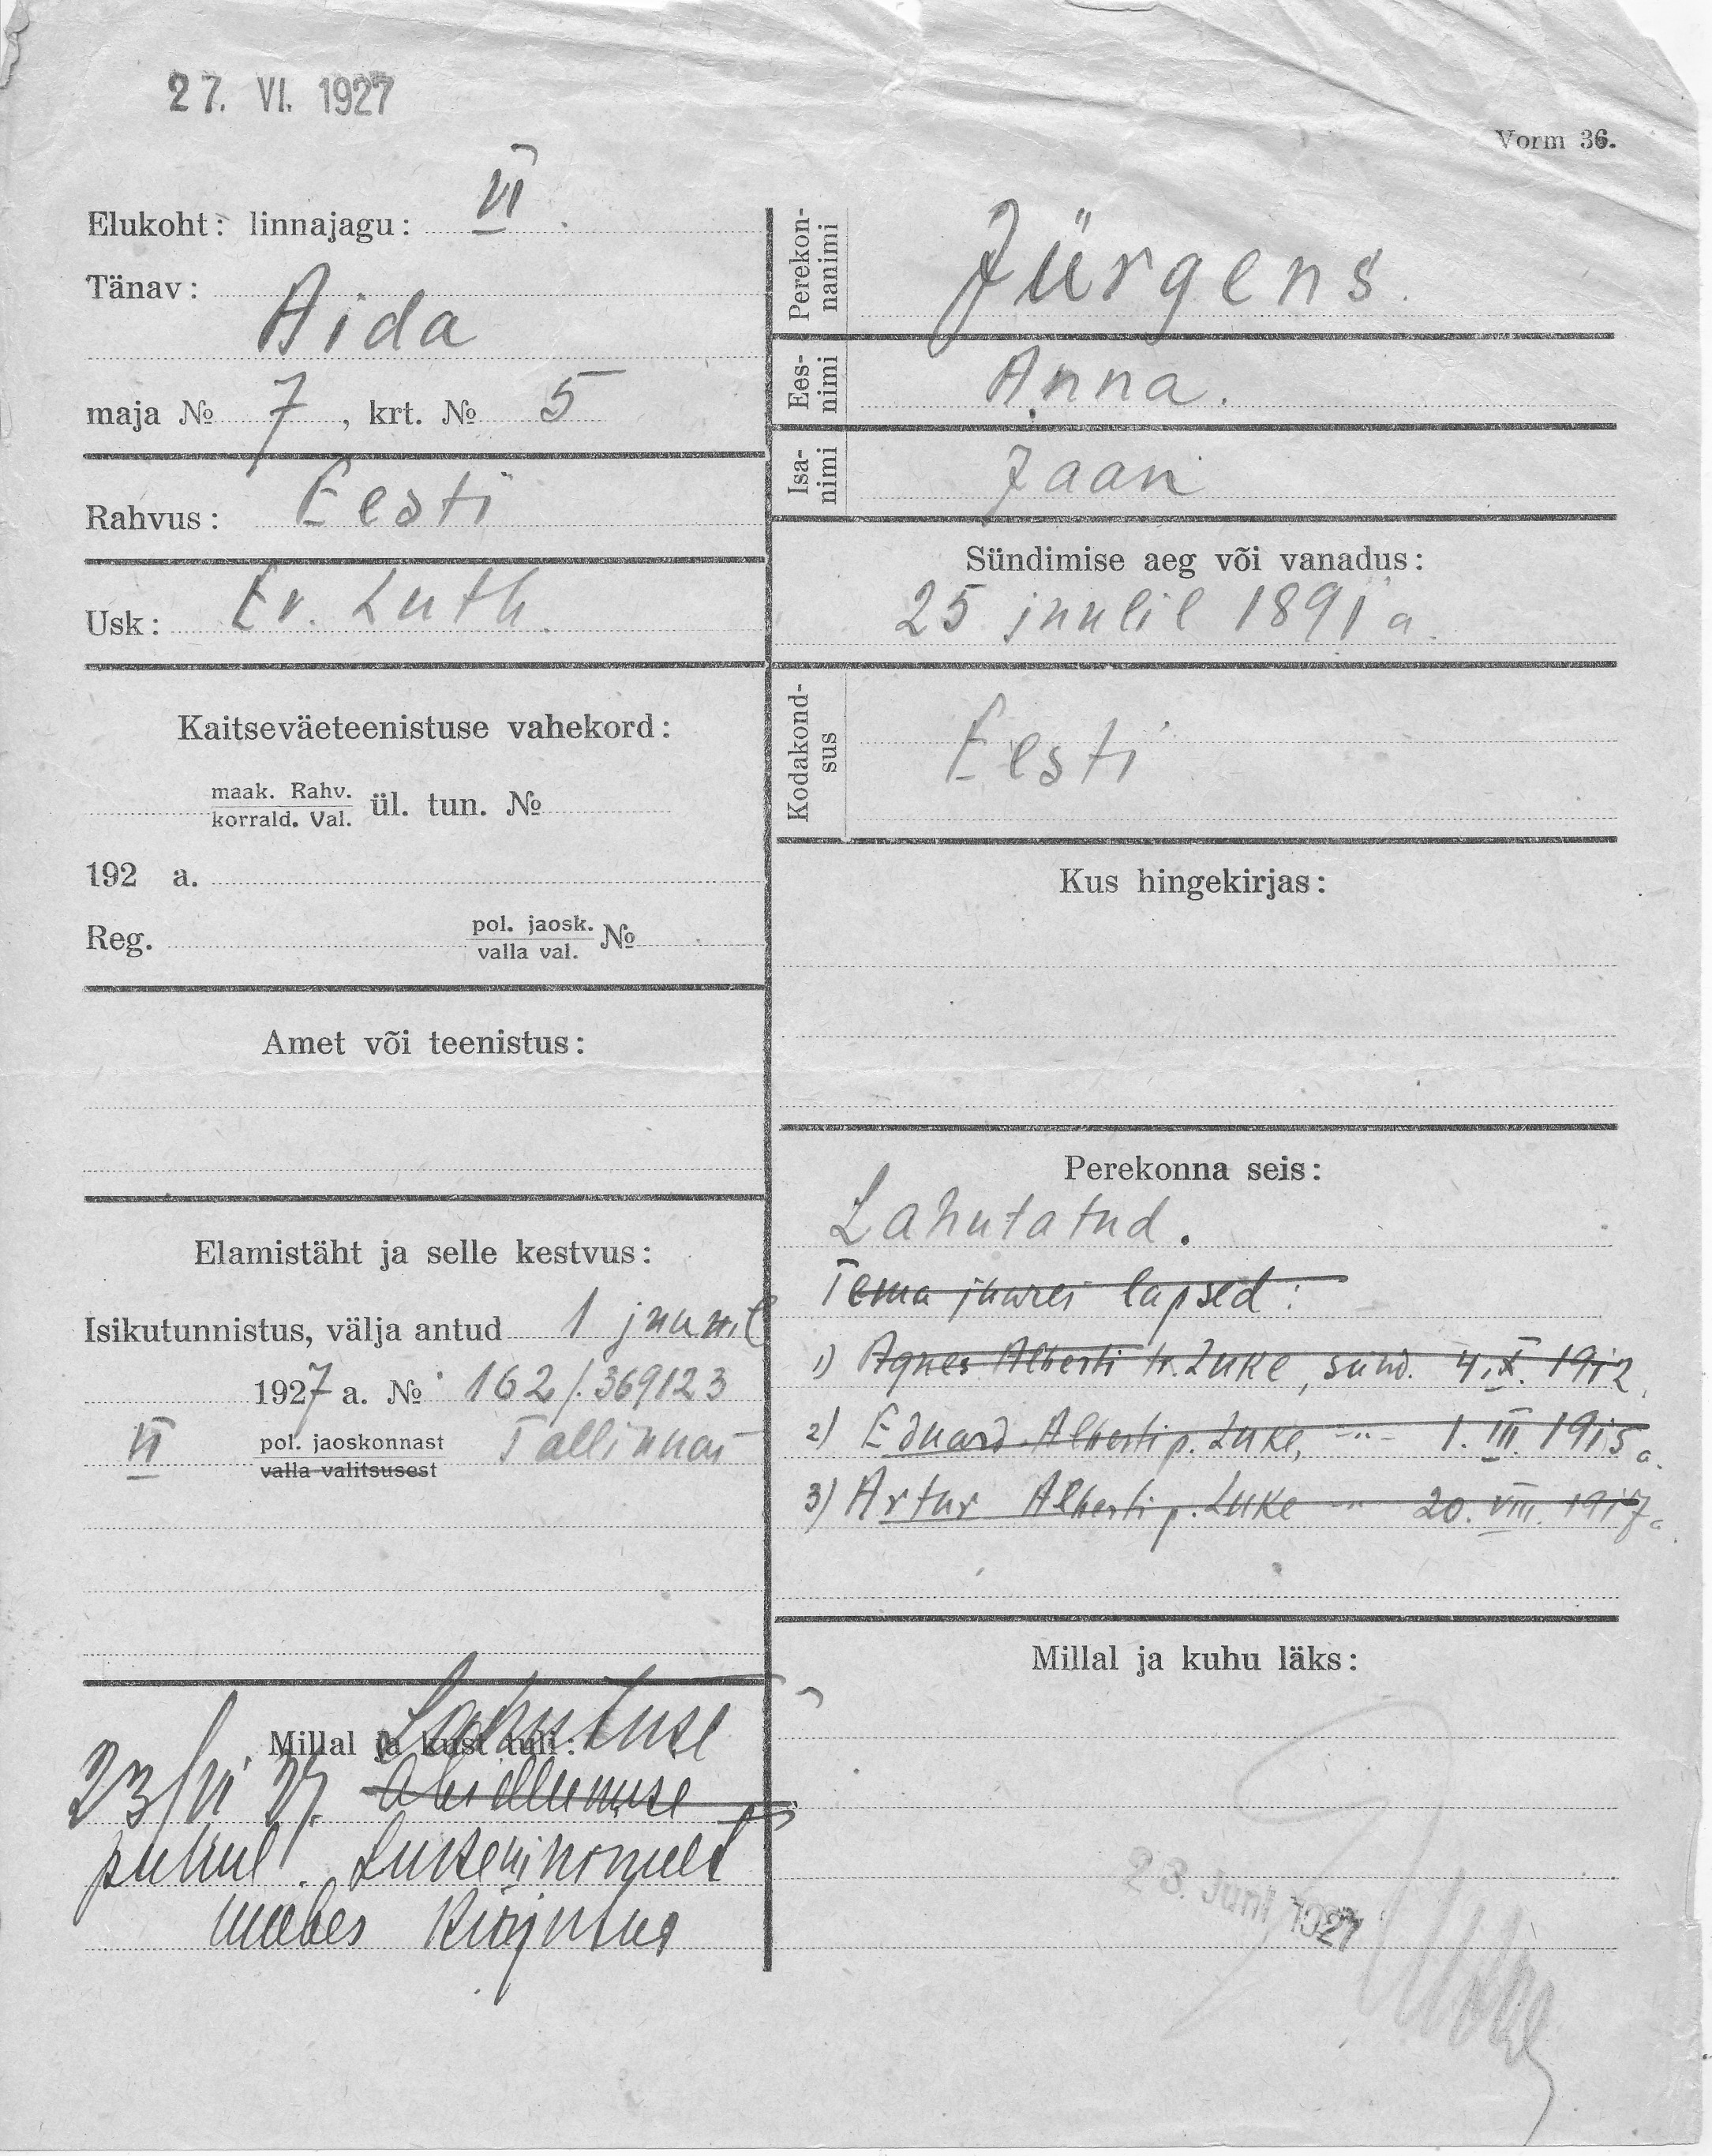 27. VI. 1927
Vorm 36.
Elukoht: linnajagu: VI
Tänav:
Aida
maja № 7, krt. № 5
Rahvus: Eesti
Usk: Ev. Luth.
Kaitseväeteenistuse vahekord:
maak. Rahv.
korrald. Val. ül. tun. №
192 a.
Reg. pol. jaosk.
valla val. №
Amet või teenistus:
Elamistäht ja selle kestvus:
Isikutunnistus, välja antud 1 juunil
1927 a. № 162/369123
VI pol. jaoskonnast Tallinnas
valla valitsusest
Millal ja kust tuli:
Lahutuse
23/VI 27.
puhul
ümber kirjutud
Perekon-
nanimi
Jürgens.
Ees-
nimi
Anna.
Isa-
nimi
Jaan
Sündimise aeg või vanadus:
25 juulil 1891 a.
Kodakond-
sus
Eesti
Kus hingekirjas:
Perekonna seis:
Lahutatud.
Tema juures lapsed:
1) Agnes Alberti tr. Luke, sünd. 4. X. 1912.
2) Eduard Alberti p. Luke, -"- 1. III. 1915 a.
3) Artur Alberti p. Luke -"- 20. VIII. 1917 a
Millal ja kuhu läks:
23. Juni 1927